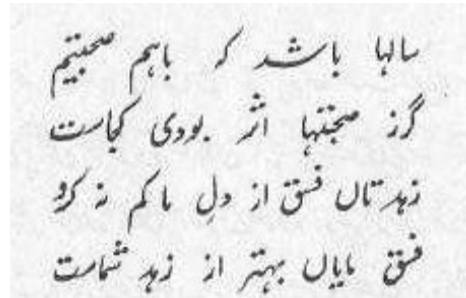 سالہا باشد کہ باہم صحبتیم
گرز صحبتہا اثر بودی کجاست
زہدتاں فسق از دلِ ما کم نہ کرد
فسق مایاں بہتر از زہد شماست